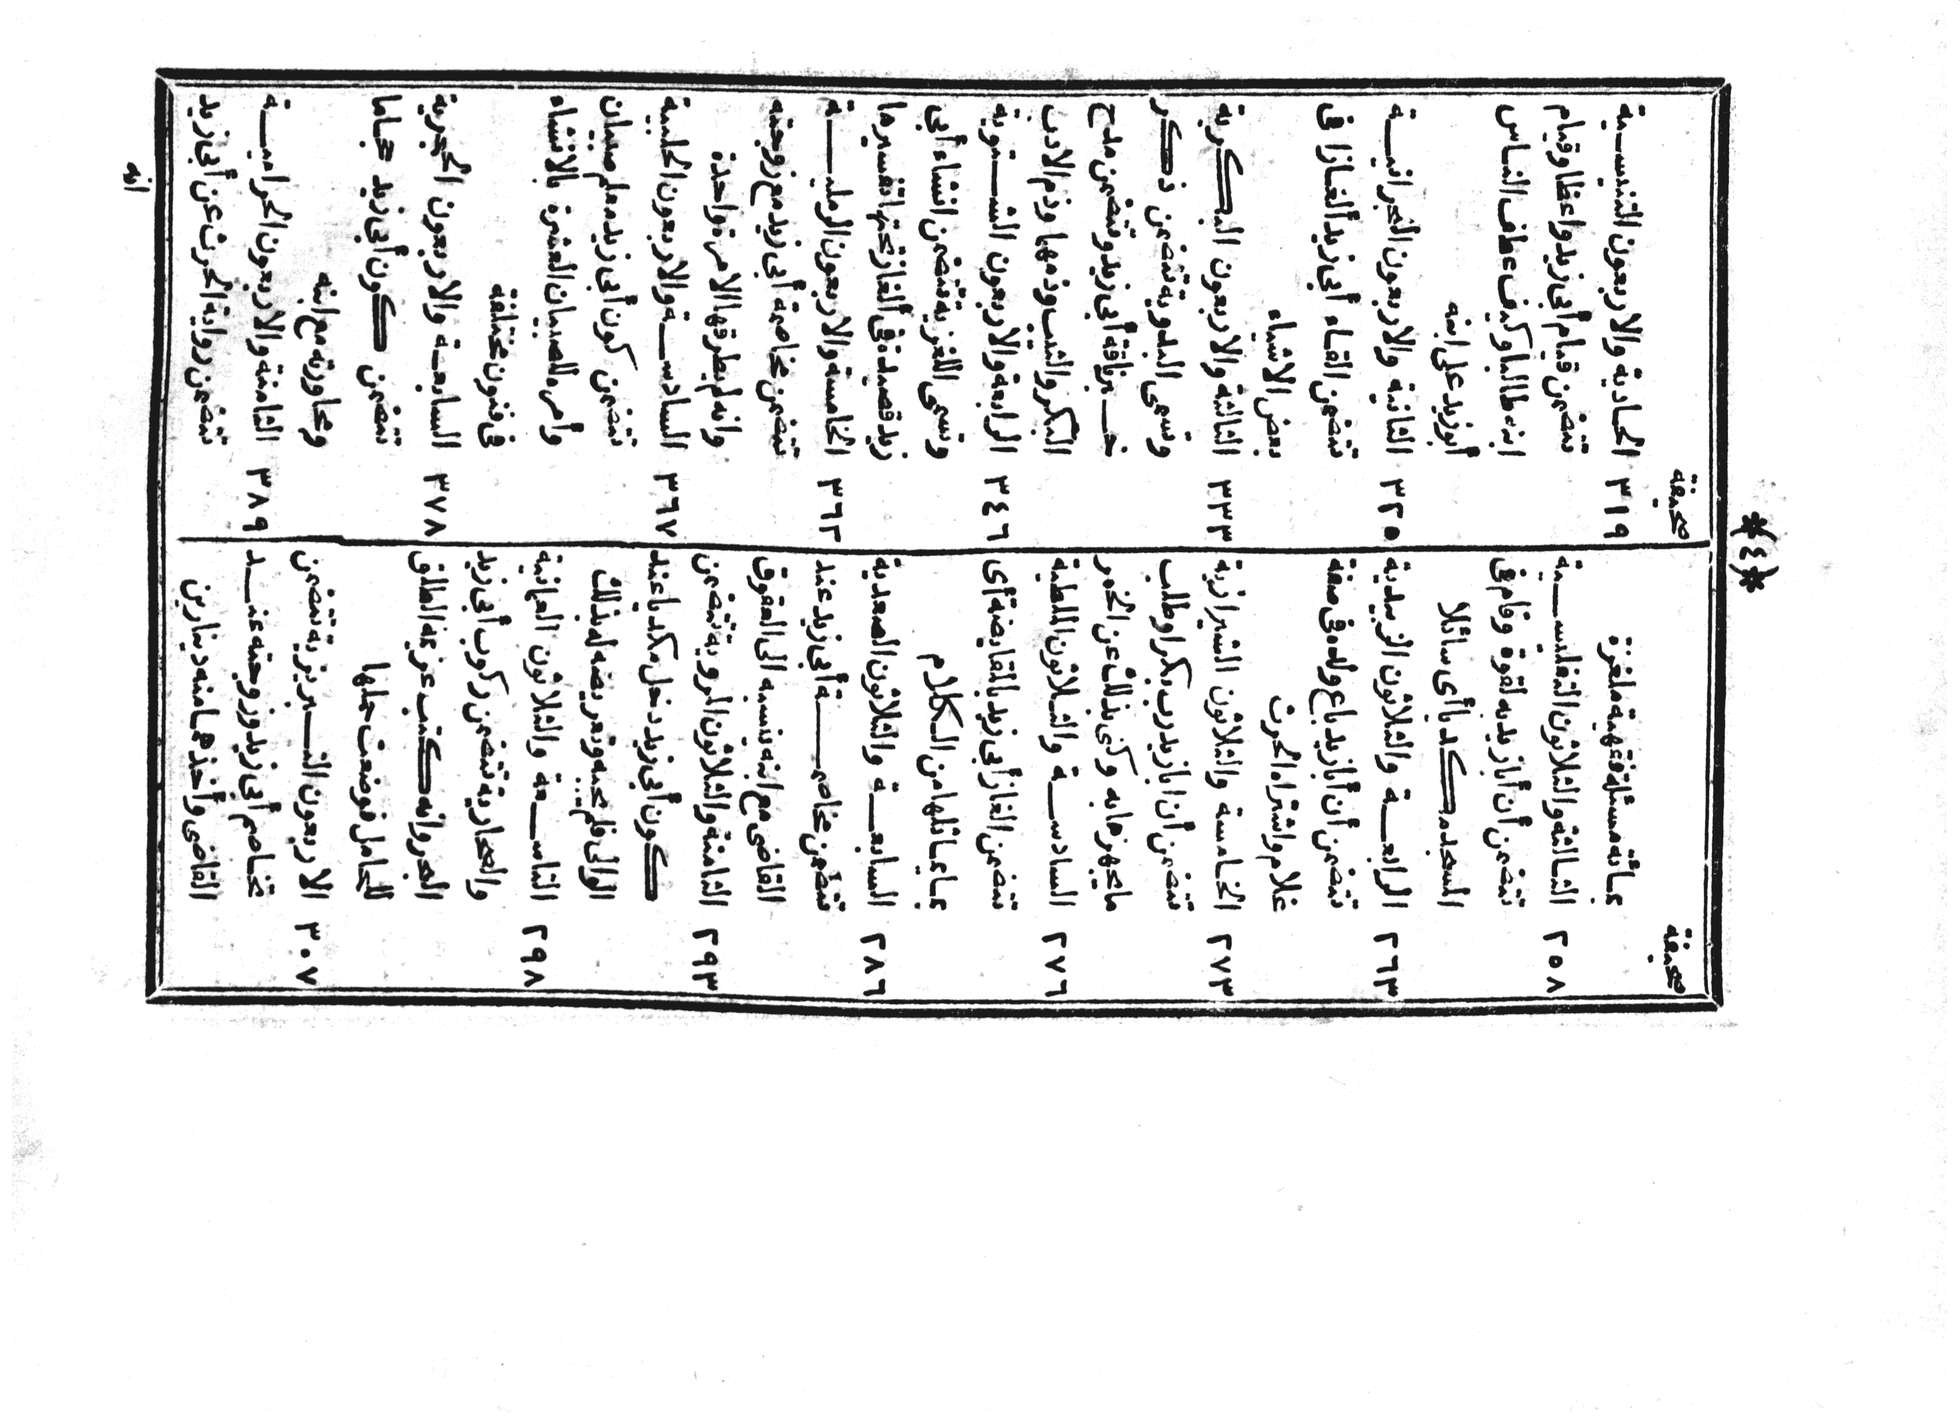 *(٤)*
صحيفة
بمائة مسئلة فقهية ملغزة
٢٥٨ الثالثة والثلاثون التفليسية
تتضمن أن أبا زيد به لقوة وقام فى
المسجد مكديا أى سائلا
٢٦٣ الرابعة والثلاثون الزبيدية
تتضمن أن أبا زيد باع ولده فى صفة
غلام واشتراه الحرث
٢٧٣ الخامسة والثلاثون الشيرازية
تتضمن أن ابا زيد رب بكرا وطلب
ما يجهزها به وكنى بذلك عن الخمر
٢٧٦ السادسة والثلاثون الملطية
تتضمن الغاز أبى زيد بالمقايضة أى
بما يماثلها من الكلام
٢٨٦ السابعة والثلاثون الصعدية
تتضمن مخاصمة أبى زيد عند
القاضى مع ابنه ينسبه الى العقوق
٢٩٣ الثامنة والثلاثون المروية تتضمن
كون أبى زيد دخل مكديا عند
الوالى فلم يحبه وتعريضه له بذلك
٢٩٨ التاسعة والثلاثون العمانية
والصحارية تتضمن ركوب أبى زيد
البحر وانه كتب عزيمة الطلق
للحامل فوضعت حملها
٣٠٧ الاربعون التبريزية تتضمن
تخاصم أبى زيد وزوجته عند
القاضى وأخذهما منه دينارين
صحيفة
٣١٩ الحادية والاربعون التنيسية
تتضمن قيام أبى زيد واعظا وقيام
ابنه طالبا وكيف عطف الناس
أبو زيد على ابنه
٣٢٥ الثانية والاربعون النجرانية
تتضمن القاء أبى زيد ألغازا فى
بعض الاشياء
٣٣٣ الثالثة والاربعون البكرية
وتسمى البدوية تتضمن ذكر
خبر ناقة أبى زيد وتتضمن مدح
البكر والثيب وذمهما وذم الادب
٣٤٦ الرابعة والاربعون الشتوية
وتسمى اللغزية تتضمن انشاء أبى
زيد قصيدة فى ألغاز تحتم تفسيرها
٣٦٢ الخامسة والاربعون الرملية
تتضمن مخاصمة أبى زيد مع زوجته
وانه لم يطرقها الا مرة واحدة
٣٦٧ السادسة والاربعون الحلبية
تتضمن كون أبى زيد معلم صبيان
وأمره للصبيان العشرة بالانشاء
فى فنون مختلفة
٣٧٨ السابعة والاربعون الحجرية
تتضمن كون أبى زيد حجاما
ومحاورته مع ابنه
٣٨٩ الثامنة والاربعون الحرامية
تتضمن رواية الحرث عن أبى زيد
انه